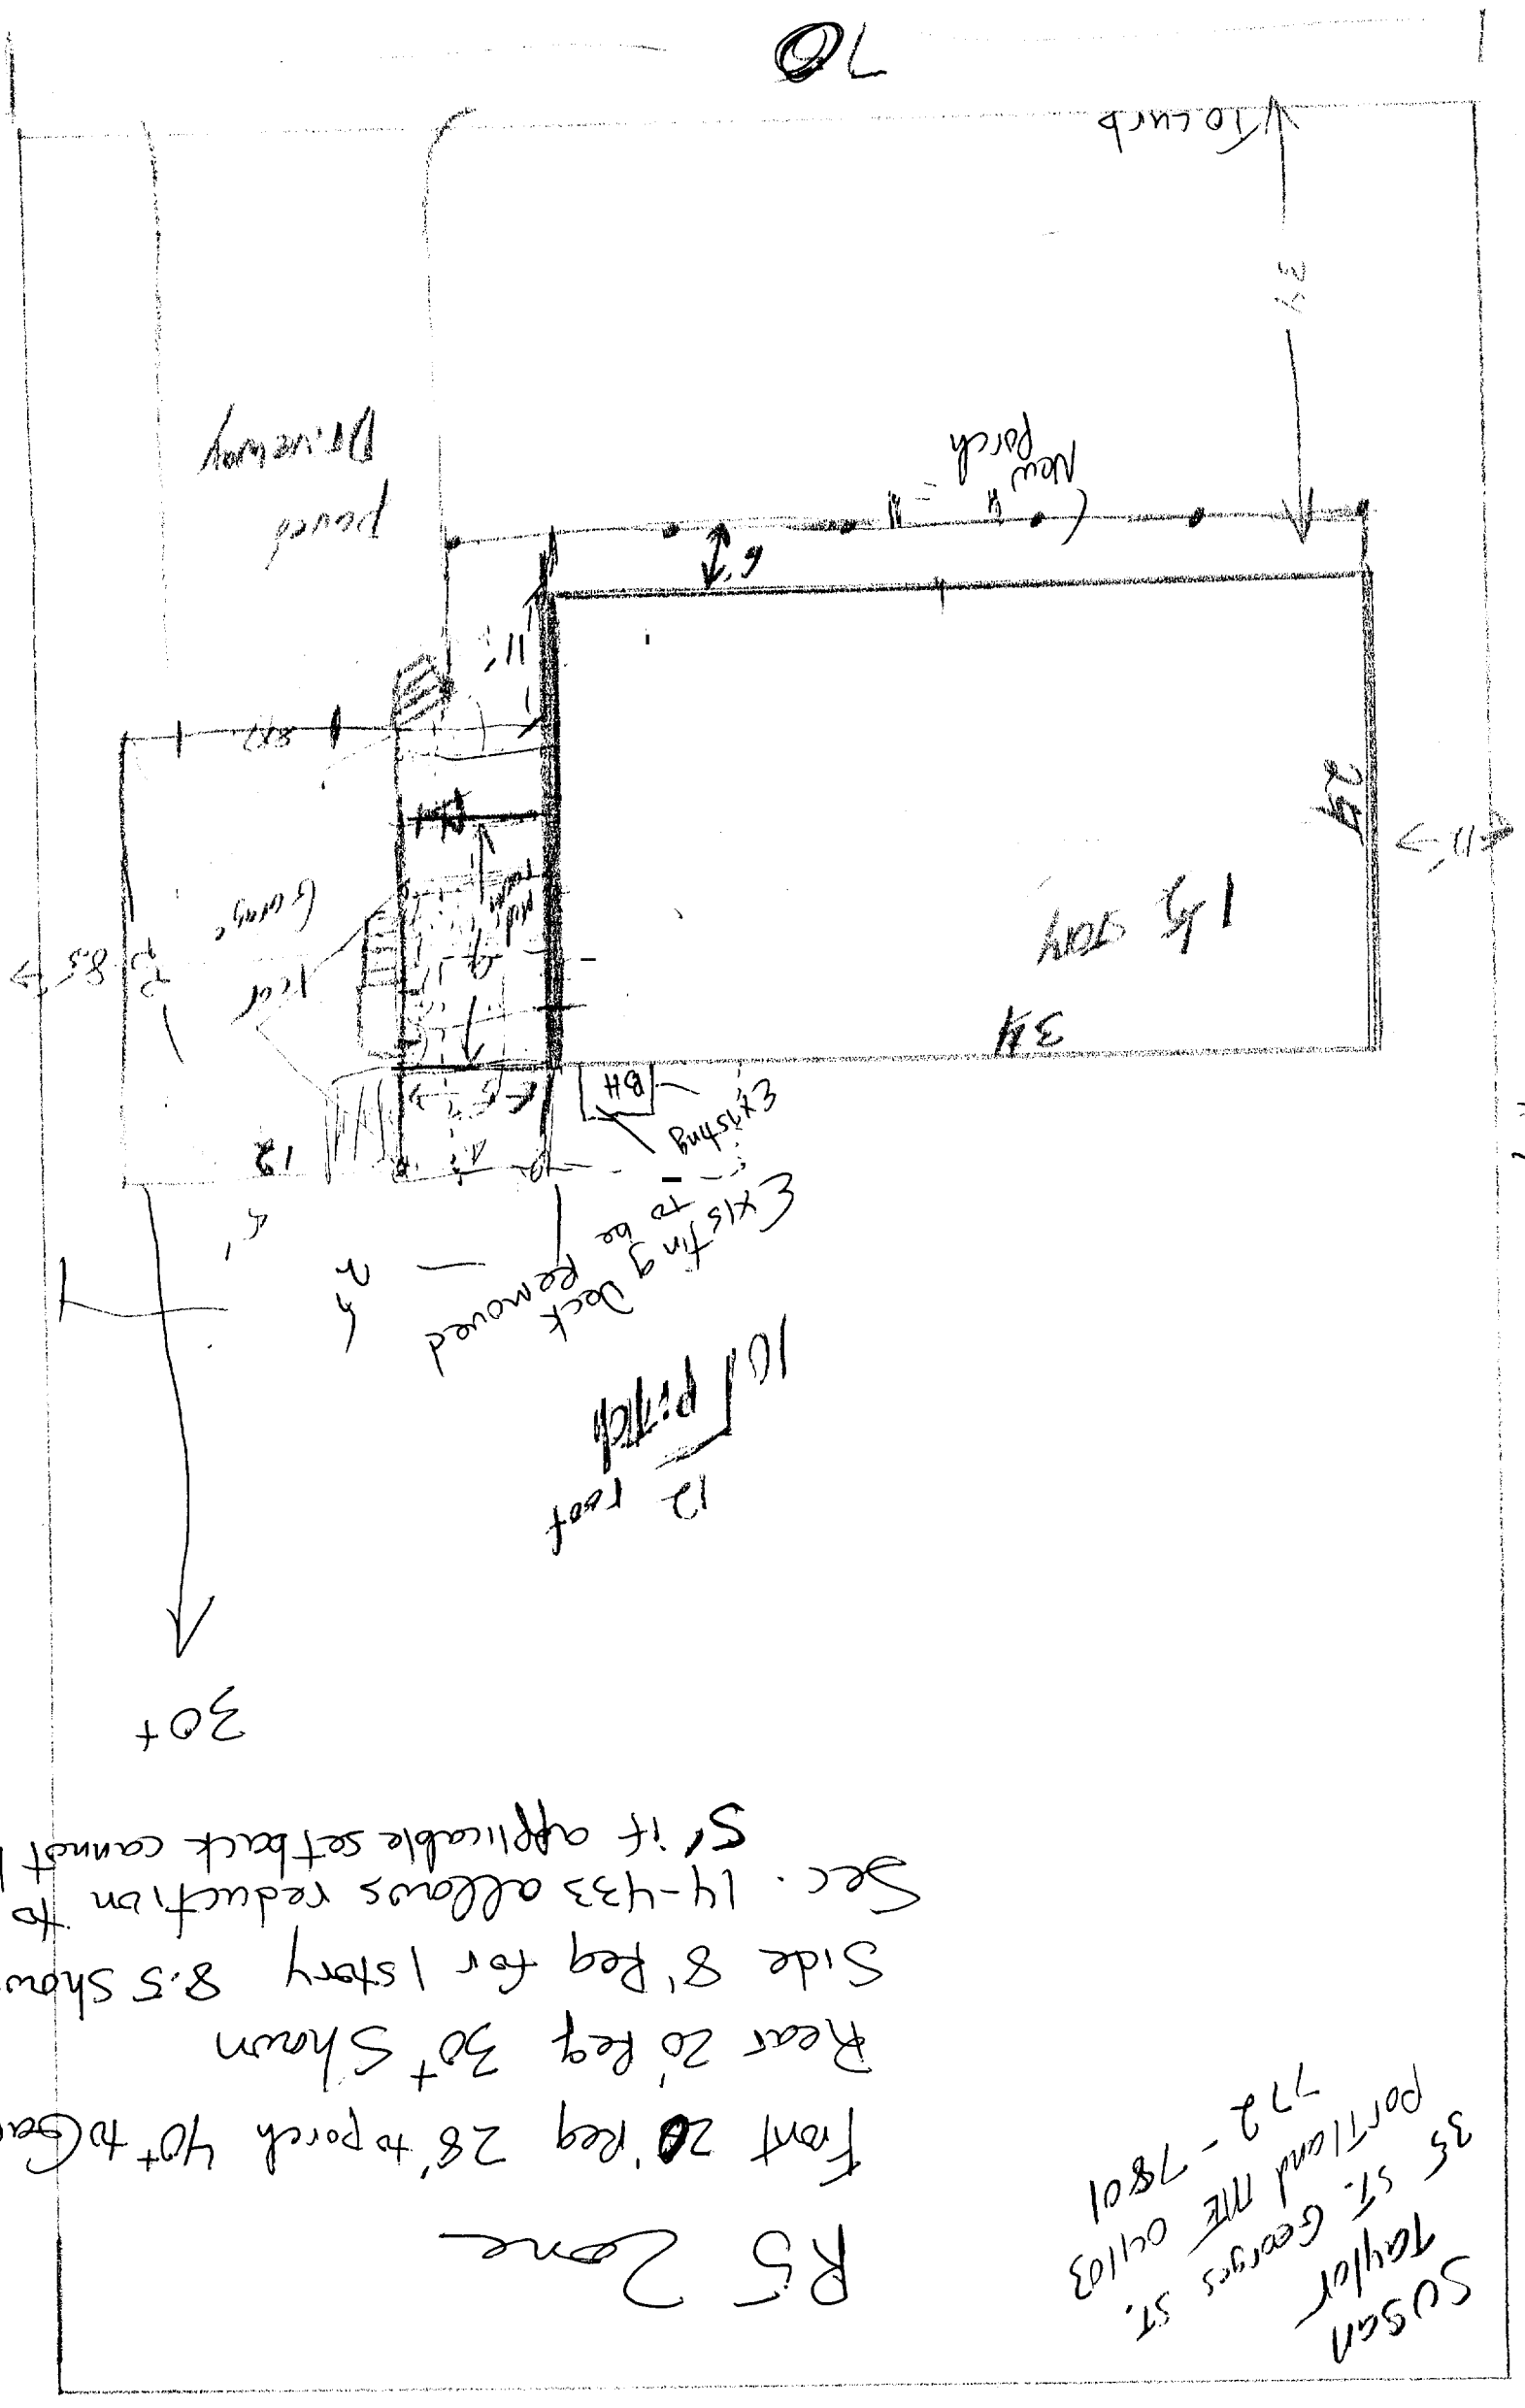 SUSAN
Taylor
35 ST. Georges ST.
Portland ME 04103
772-7801
R5 Zone
Front 20' Req 28' to porch 40+ to Ga
Rear 20' Req 30+ Shown
Side 8' Req for 1 story 8.5 Show
Sec. 14-433 allows reduction to
5' if applicable setback cannot
30+
12 roof
10 pitch
Existing Deck
to be Removed
Existing
BH
12
34
1½ STORY
24
11'
8.5
Garage
8x7
11'
6'
New
Porch
paved
Driveway
34
To curb
70